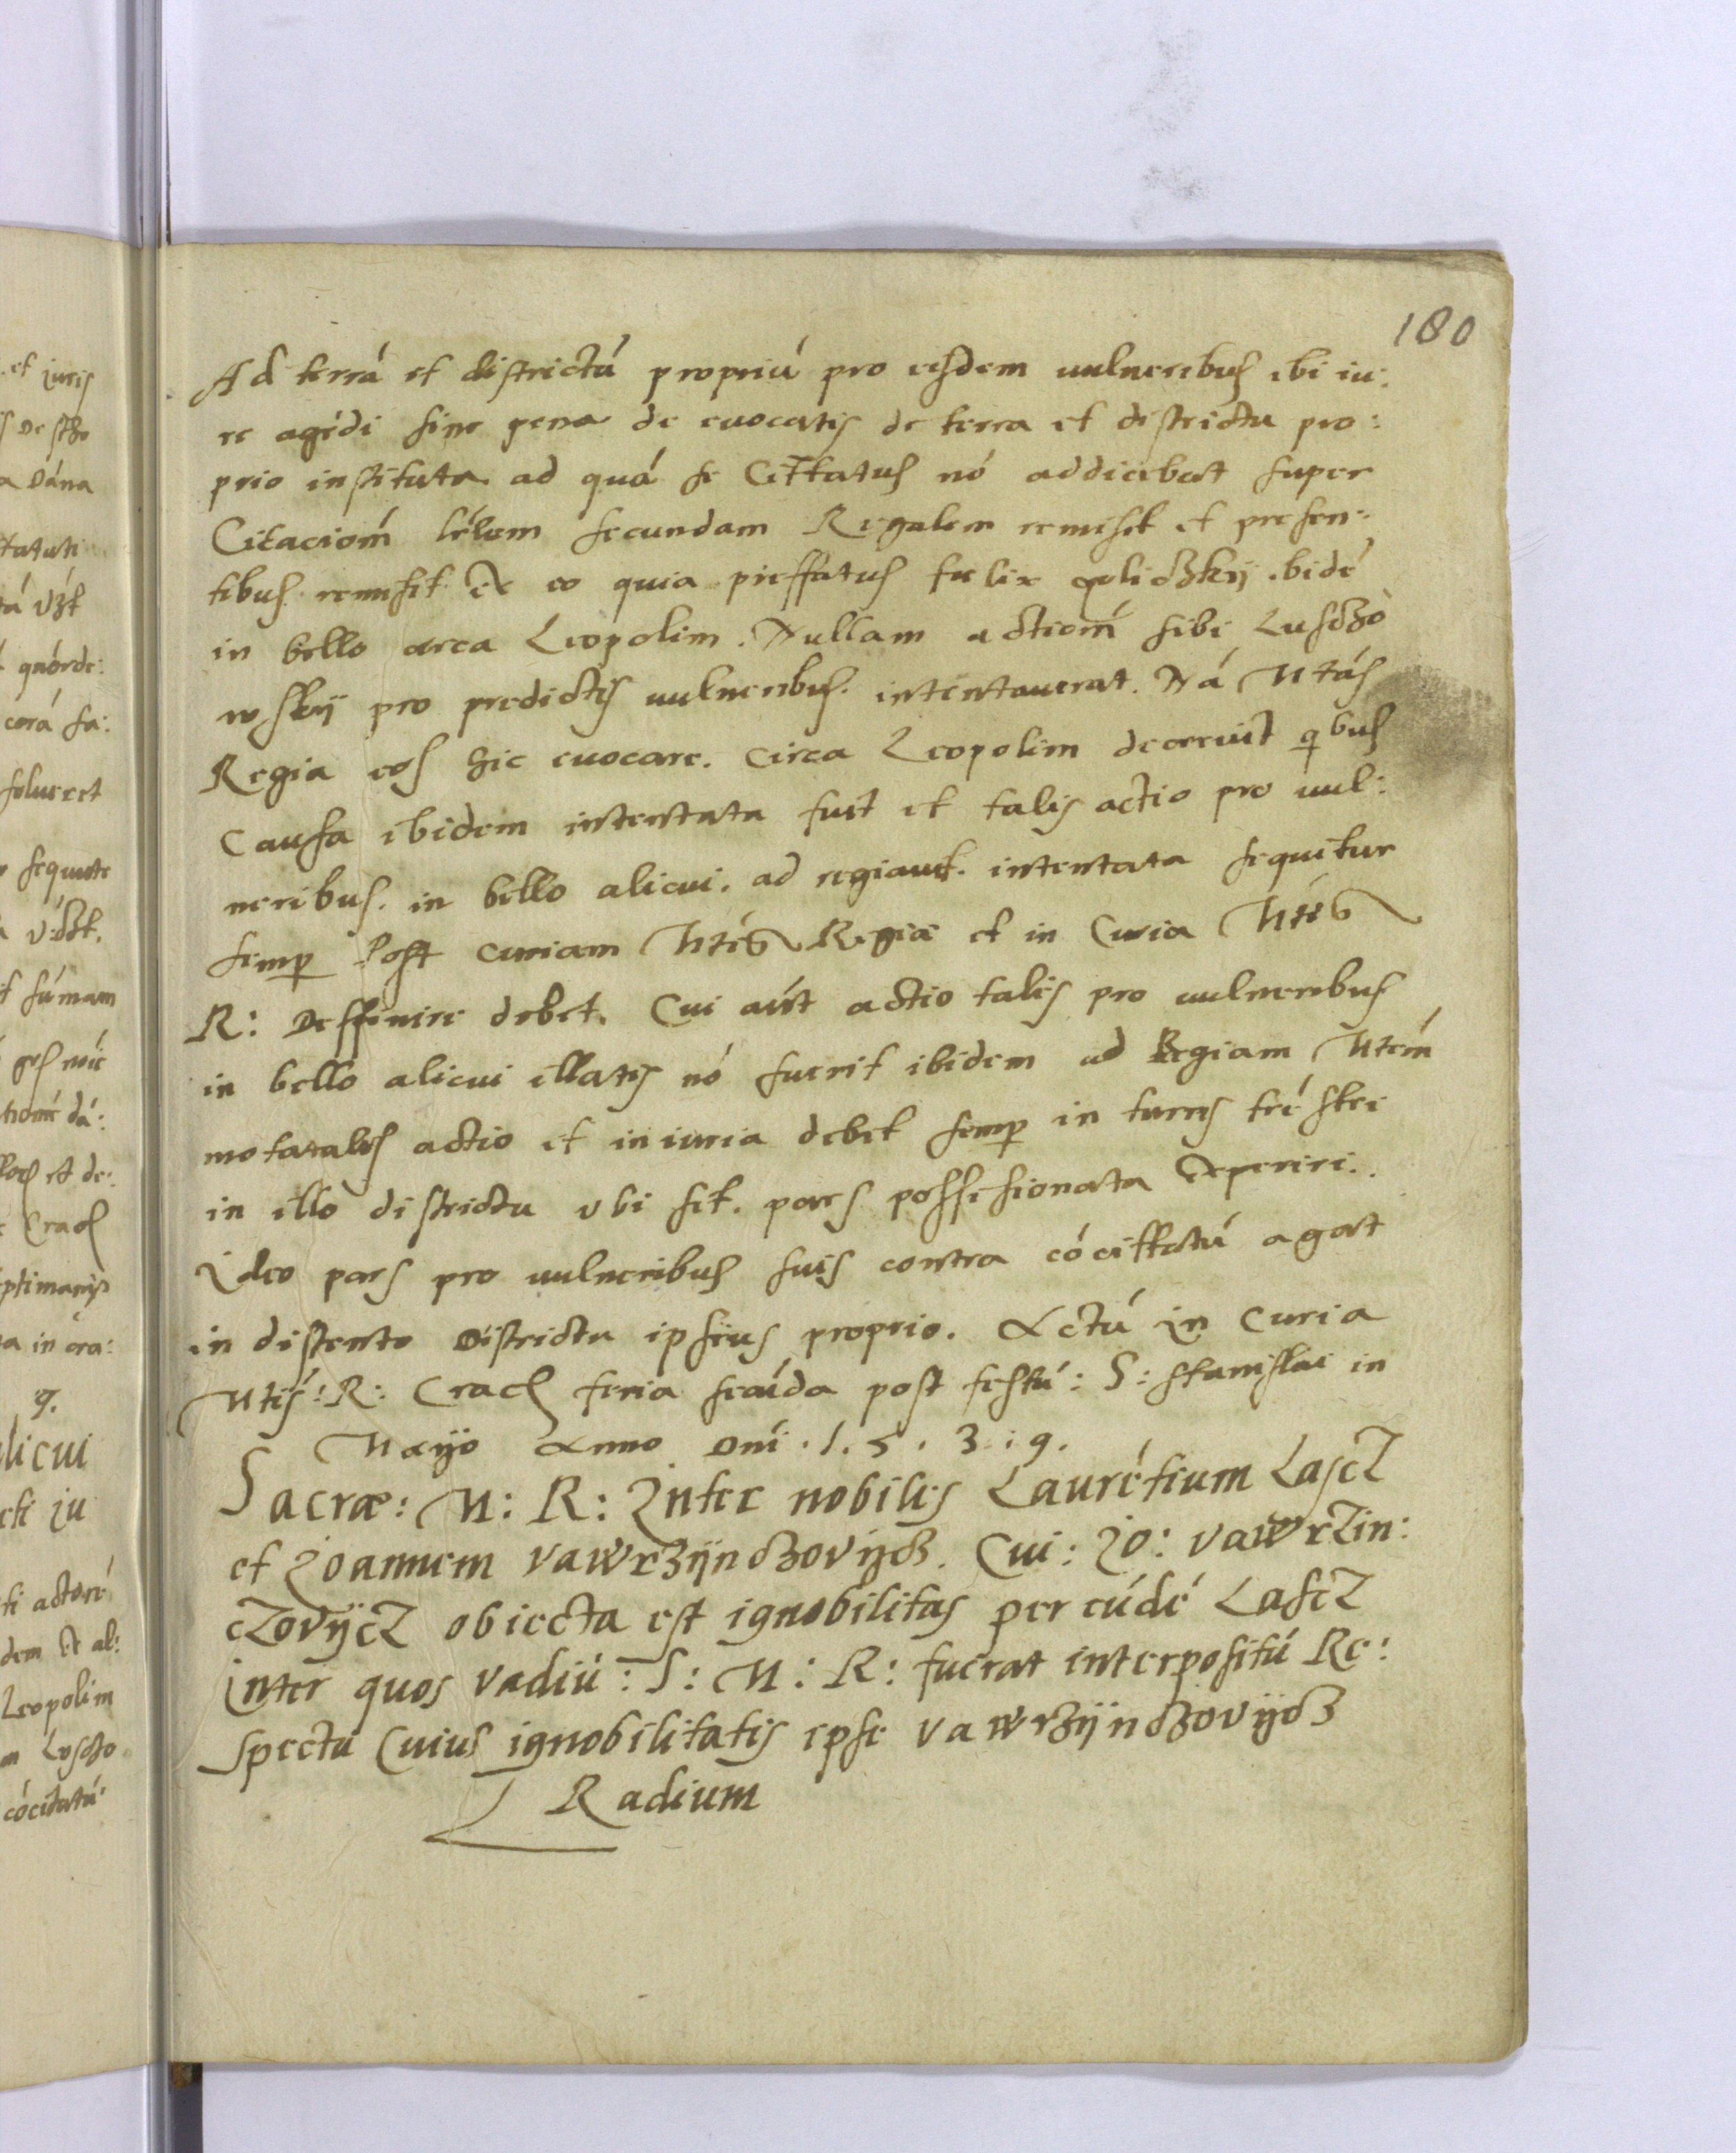 180
Ad terrá et districtú propriú pro eisdem uulneribus ibi iu:
re agédi sine pena de euocatis de terra et districtu pro:
prio instituta ad quá se Cittatus nó addicebat super
Citacioné secundam Regalem remisit et presen:
tibus remisit Ex eo quia prefatus felix golidzkij ibidé
in bello circa Leopolim. Nullam actioné sibi Lusdzo
wskij pro predictis uulneribus. intentauerat. Ná Mtás
Regia eos hic euocare. circa Leopolim decreuit qibus
Causa ibidem intentata fuit et talis actio pro uul:
neribus. in bello alicui. ad regiam. intentata sequitur
semp Post curiam Mtis Regiæ et in Curia Mtis
R: Deffinire debet. Cui aút actio talis pro uulneribus
in bello alicui illatis nó fuerit ibidem ad Regiam Mtém
mota talis actio et iniuria debet semp in turris tréstri
in illo districtu vbi sit. pars possesionata Experiri..
Ideo pars pro uulneribus suis contra cócittatú agat
in distento Districtu ipsius proprio. Actú in Curia
Mtis: R: Crach feria secúda post festú: S: stanislai in
Mayo Anno Dni. 1. 5. 3. 9.
Sacræ: M: R: Inter nobiles Laurétium Lascz
et Joannem vawrzyndzovijdz. Cui: Jo: vawrzin:
czovijcz obiecta est ignobilitas per eúdé Lascz
inter quos vadiú: S: M: R: fuerat interpositú Re:
spectu Cuius ignobilitatis ipse vawrzijndzovijdz
Radium
et iuris
a Dána
tatuti
tá vzt
quórde:
corá fa:
solueret
sequete
f súmam
et de:
Crach
ptimanis
a in cra:
9.
licui
cti iu
ti actoré
dem Et al:
Leopolim
m Lusdzo
cócitatú